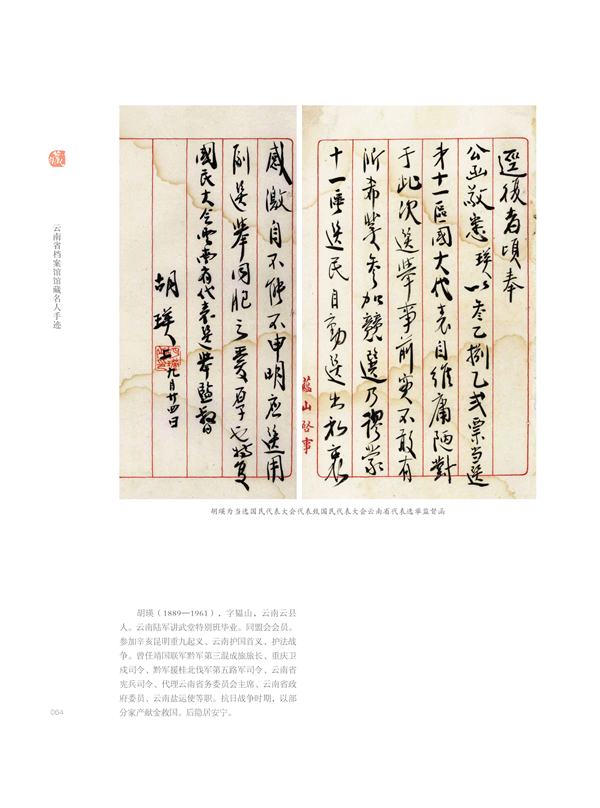 逕復者頃奉
公函敬悉瑛以叁乙捌乙弍票当選
第十一區國大代表自維庸陋對
于此次選舉事前實不敢有
所希冀參加競選乃謬蒙
十一區選民自動選出私衷
蘊山啓事
感激自不能不申明應選用
副選舉同胞之愛厚也特复
國民大会雲南省代表選舉監督
胡瑛上九月廿四日
藏
云南省档案馆馆藏名人手迹
胡瑛为当选国民代表大会代表致国民代表大会云南省代表选举监督函
胡瑛（1889—1961），字韫山，云南云县
人。云南陆军讲武堂特别班毕业。同盟会会员。
参加辛亥昆明重九起义、云南护国首义、护法战
争。曾任靖国联军黔军第三混成旅旅长、重庆卫
戍司令、黔军援桂北伐军第五路军司令、云南省
宪兵司令、代理云南省务委员会主席、云南省政
府委员、云南盐运使等职。抗日战争时期，以部
分家产献金救国。后隐居安宁。
064